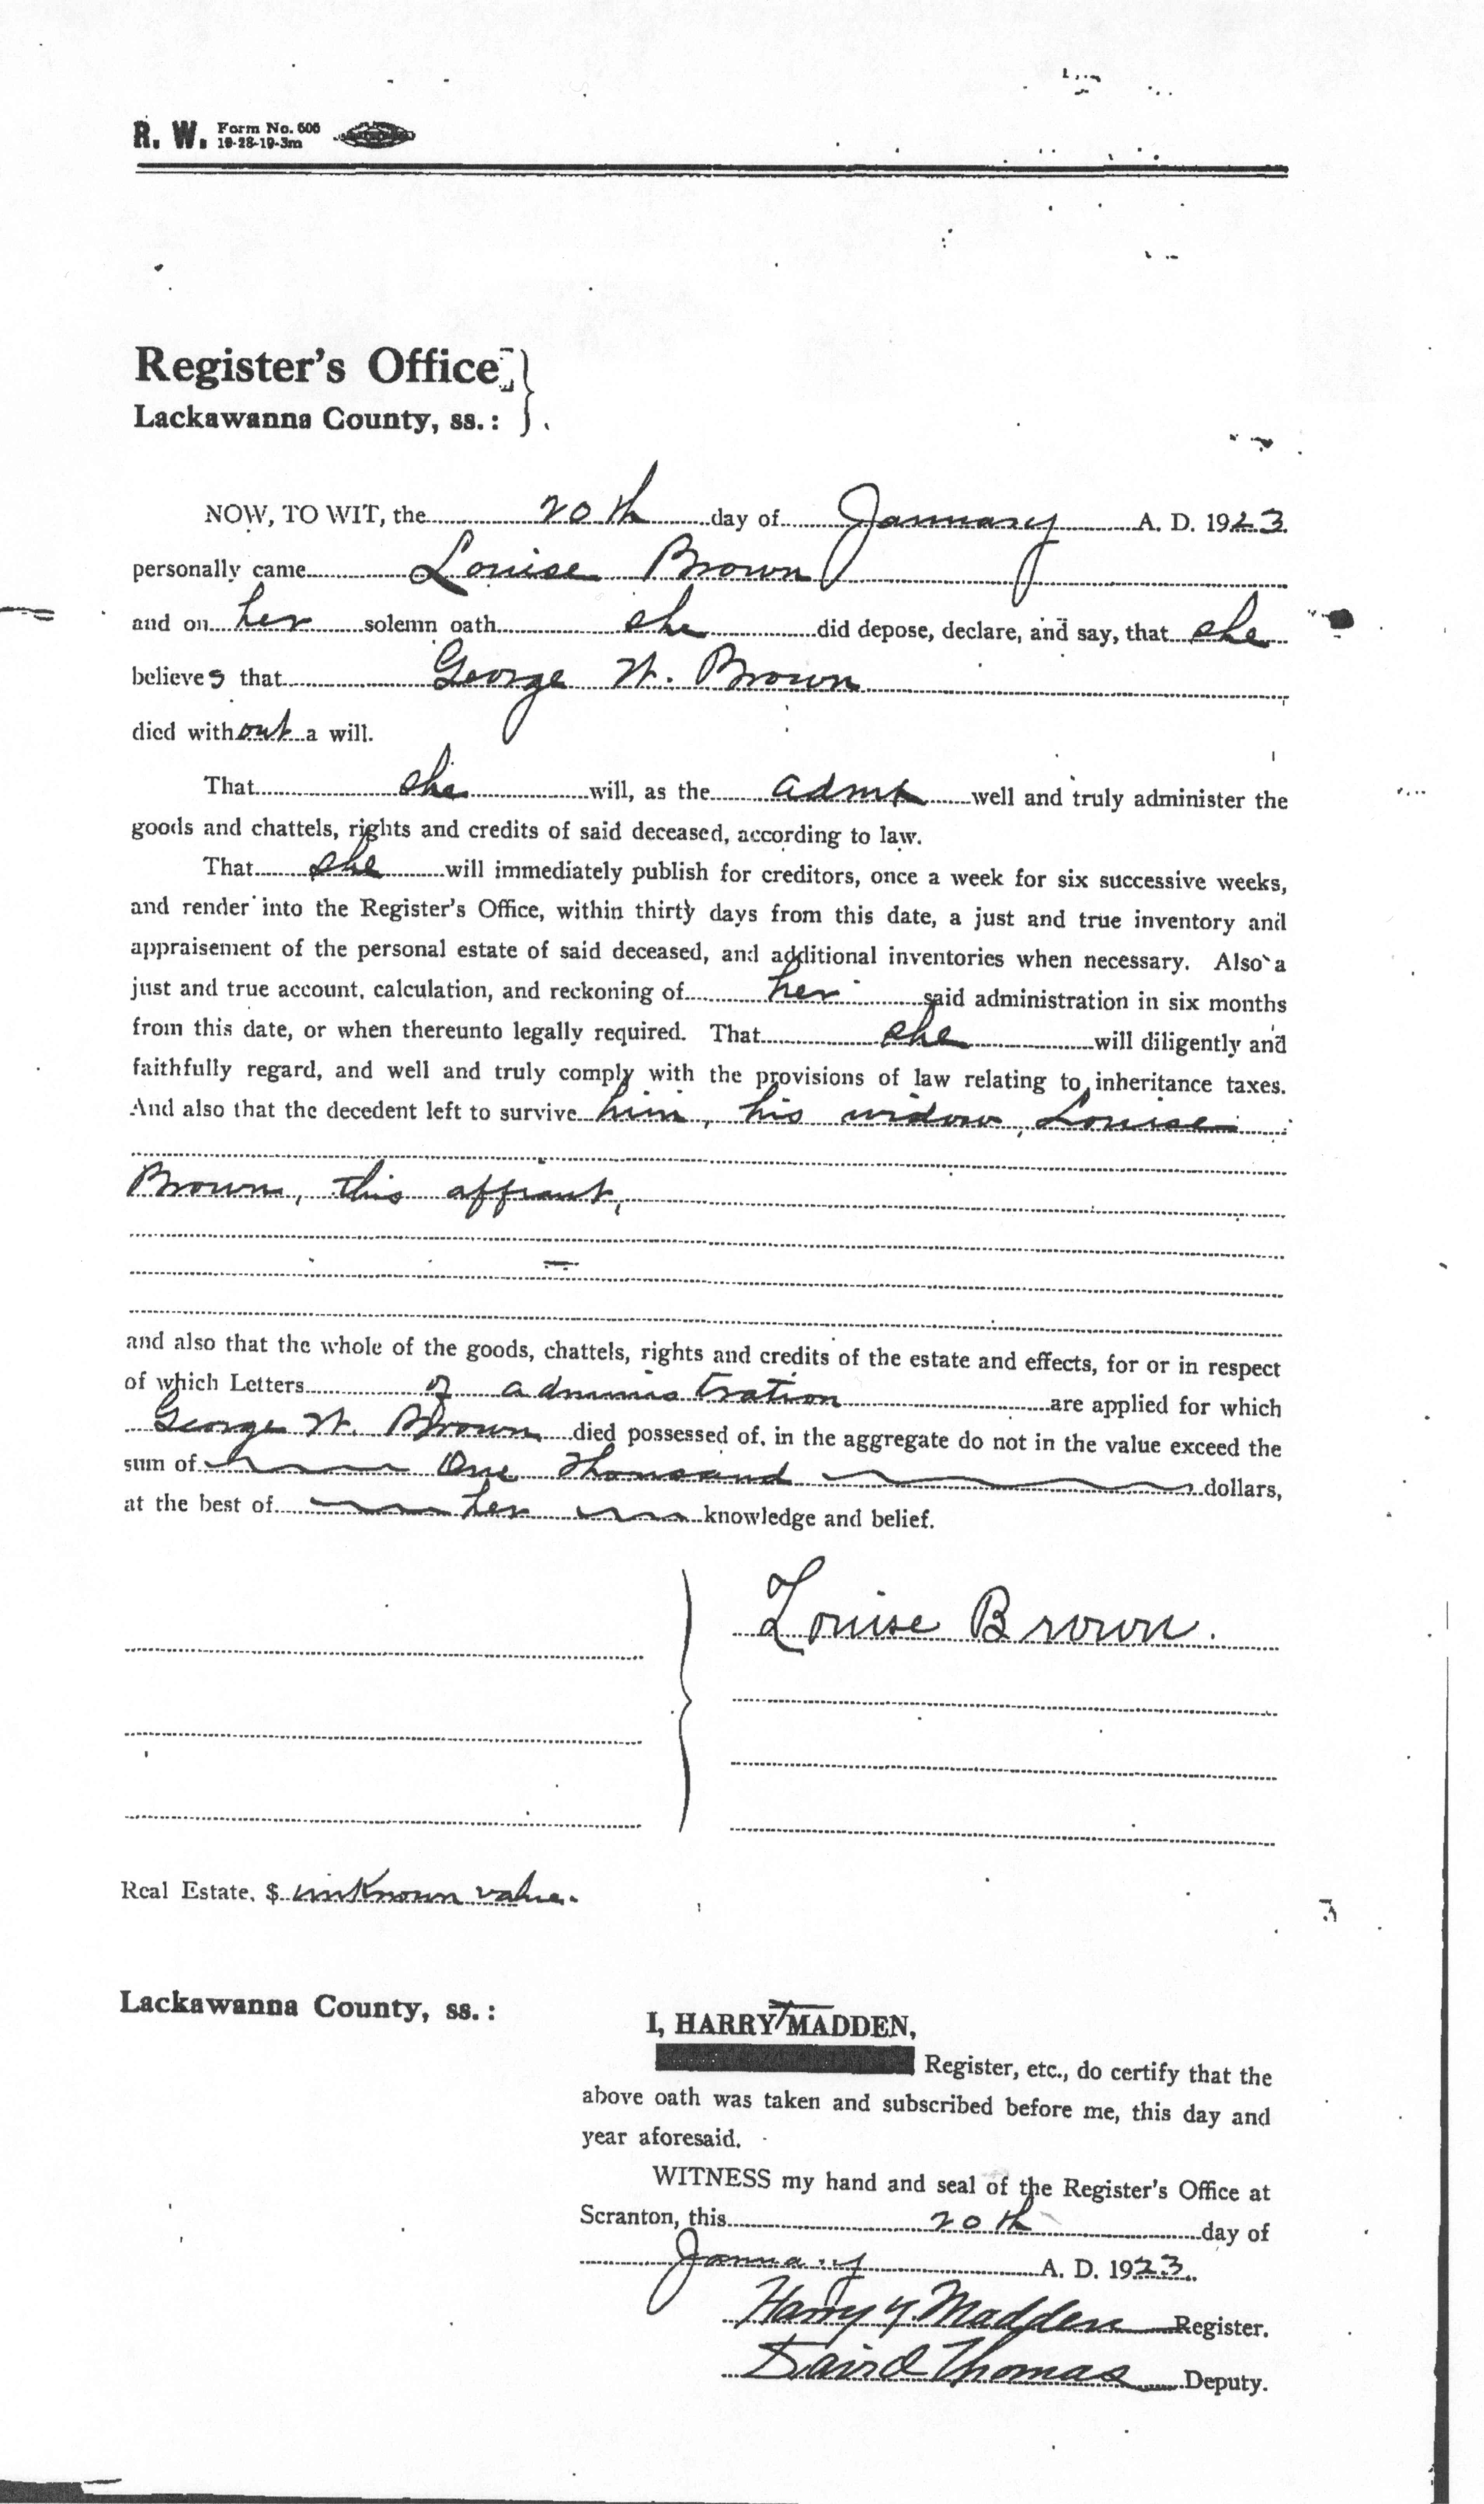 R. W. Form No. 606
10-28-19-3m
Register's Office
Lackawanna County, ss.:
NOW, TO WIT, the 20th day of January A. D. 1923
personally came Louise Brown
and on her solemn oath she did depose, declare, and say, that she
believes that George W. Brown
died without a will.
That she will, as the admx well and truly administer the
goods and chattels, rights and credits of said deceased, according to law.
That she will immediately publish for creditors, once a week for six successive weeks,
and render into the Register's Office, within thirty days from this date, a just and true inventory and
appraisement of the personal estate of said deceased, and additional inventories when necessary. Also a
just and true account, calculation, and reckoning of her said administration in six months
from this date, or when thereunto legally required. That she will diligently and
faithfully regard, and well and truly comply with the provisions of law relating to inheritance taxes.
And also that the decedent left to survive him, his widow, Louise
Brown, this affiant,
and also that the whole of the goods, chattels, rights and credits of the estate and effects, for or in respect
of which Letters of administration are applied for which
George W. Brown died possessed of, in the aggregate do not in the value exceed the
sum of One Thousand dollars,
at the best of her knowledge and belief.
Louise Brown.
Real Estate, $ unknown value.
Lackawanna County, ss.:
I, HARRY T MADDEN,
Register, etc., do certify that the
above oath was taken and subscribed before me, this day and
year aforesaid.
WITNESS my hand and seal of the Register's Office at
Scranton, this 20th day of
January A. D. 1923.
Harry T. Madden Register.
Thomas Deputy.